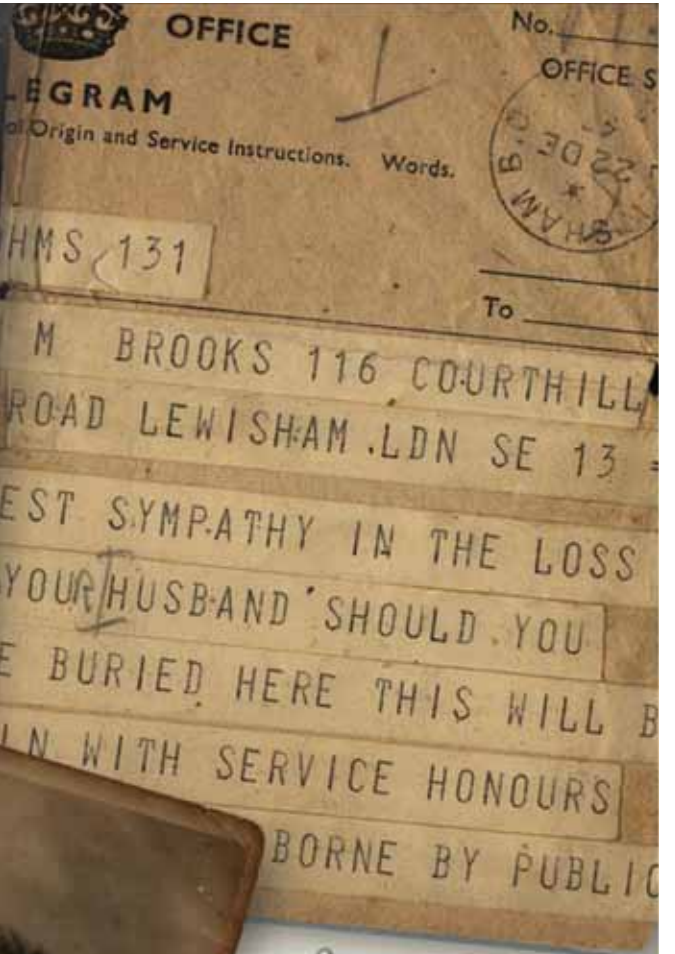 OFFICE
No.
OFFICE S
EGRAM
Origin and Service Instructions. Words.
22 DE
HAM B.O
HMS 131
To
M BROOKS 116 COURTHILL
ROAD LEWISHAM .LDN SE 13 =
EST SYMPATHY IN THE LOSS
YOUR HUSBAND SHOULD YOU
E BURIED HERE THIS WILL B
IN WITH SERVICE HONOURS
BORNE BY PUBLIC